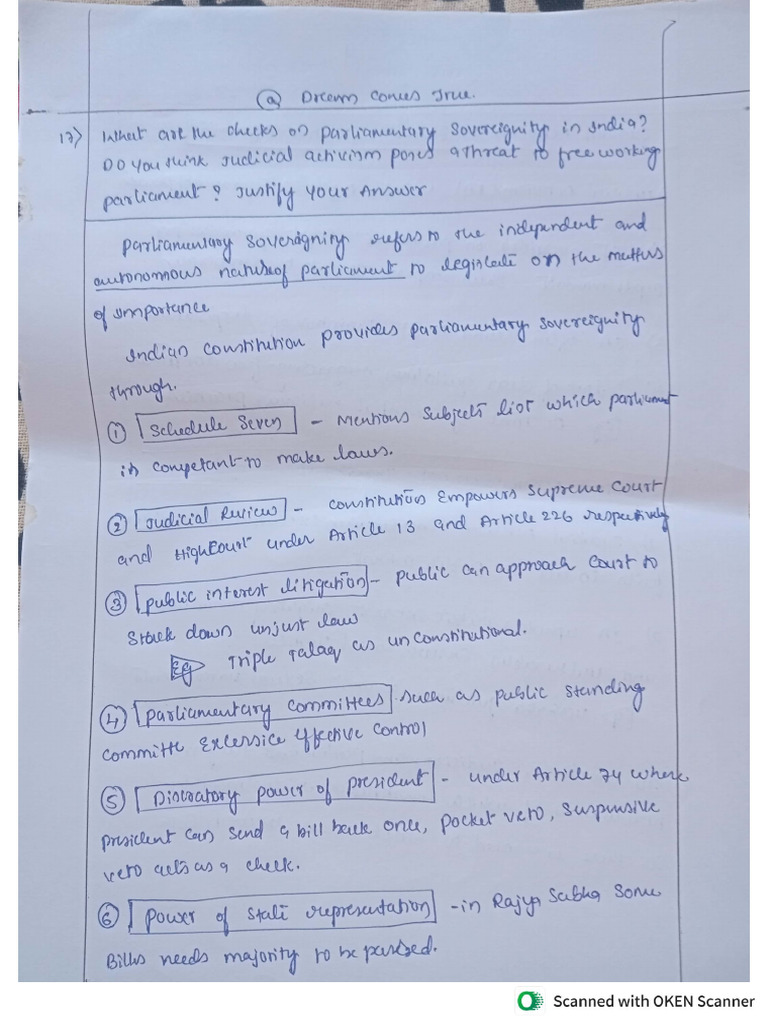 @ Dream comes True.
17) What are the checks on parliamentary sovereignity in India?
Do you think Judicial activism poses a threat to free working
parliament? Justify your Answer
parliamentary sovereignity refers to the independent and
autonomous nature of parliament to legislate on the matters
of importance
Indian constitution provides parliamentary sovereignity
through.
① Schedule Seven - Mentions Subjects list which parliament
is competant to make laws.
② Judicial Review - constitution Empowers Supreme Court
and High Court under Article 13 and Article 226 respectively
③ public interest litigation - public can approach court to
Stuck down unjust law
Eg Triple Talaq as unconstitutional.
④ parliamentary committees such as public standing
committe Excersice effective control
⑤ Discratory power of president - under Article 74 where
president can send a bill back once, pocket veto, suspensive
veto acts as a check.
⑥ power of state representation - in Rajya Sabha some
Bills needs majority to be
Scanned with OKEN Scanner